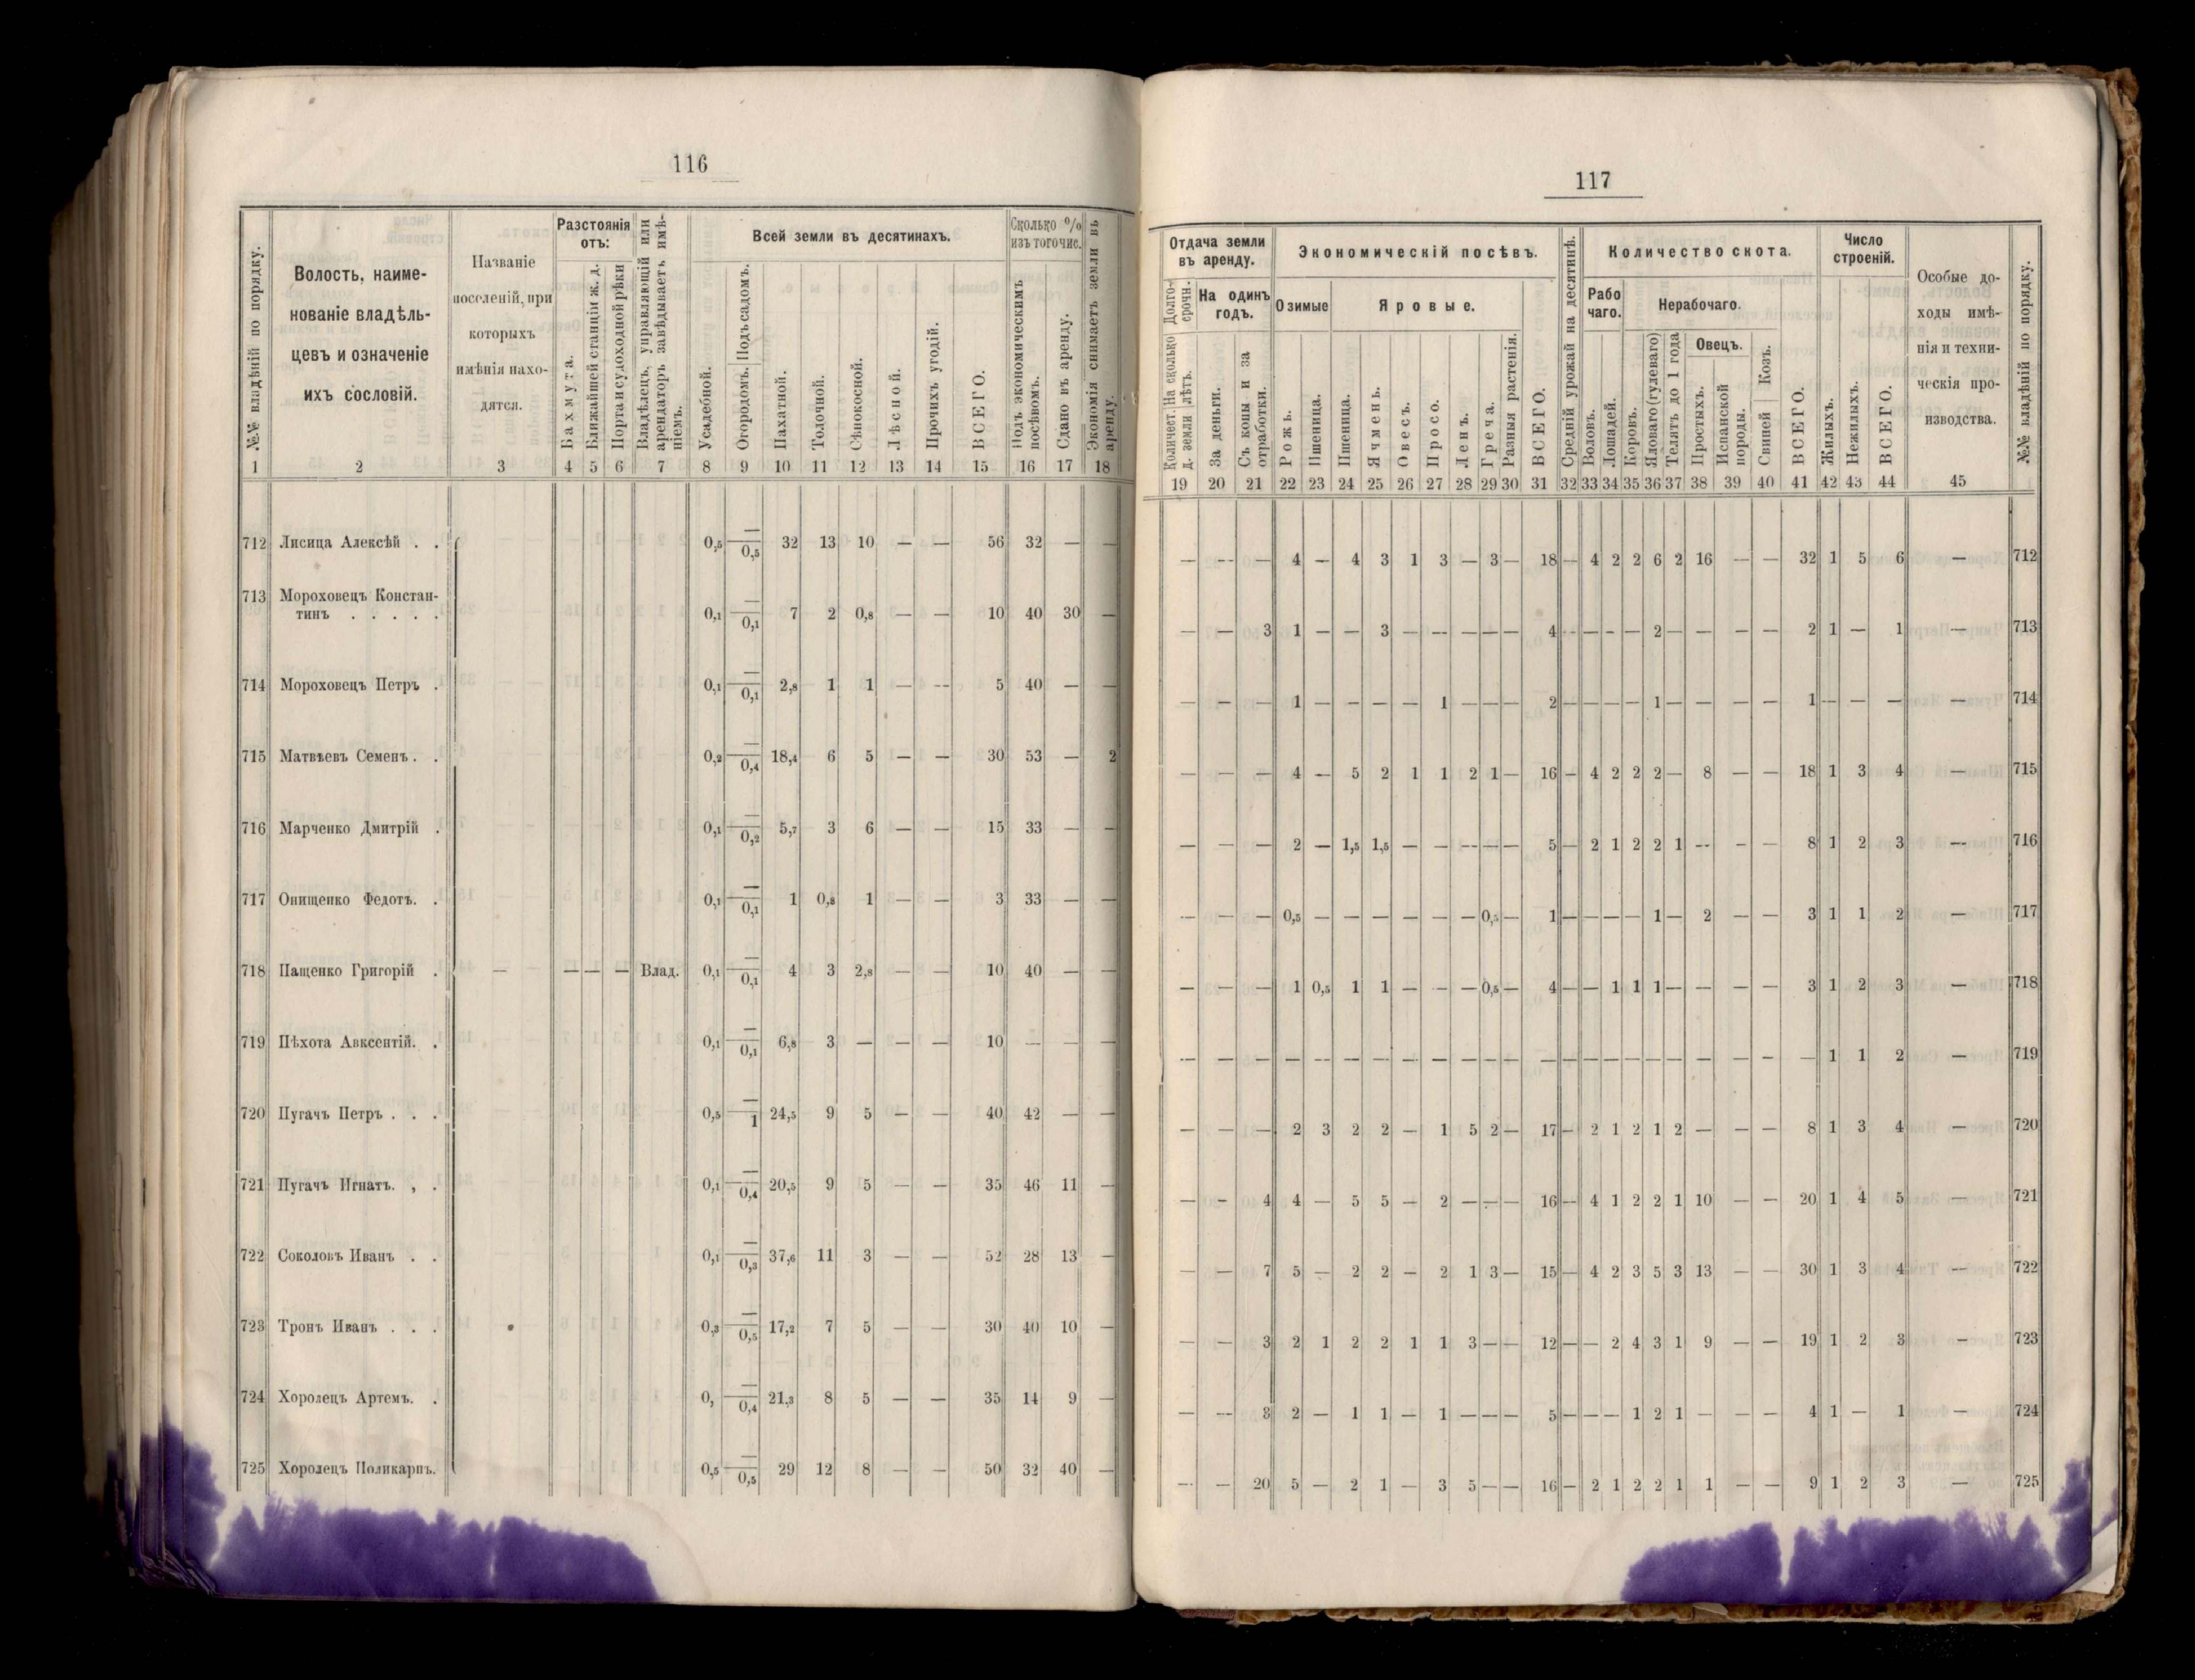 116
№№ владѣній по порядку.
Волость, наиме-
нованіе владѣль-
цевъ и означеніе
ихъ сословій.
Названіе
поселеній, при
которыхъ
имѣнія нахо-
дятся.
Разстоянія
отъ:
Бахмута.
Ближайшей станціи ж. д.
Порта и судоходной рѣки
Владѣлецъ, управляющій или
арендаторъ завѣдываетъ имѣ-
ніемъ.
Всей земли въ десятинахъ.
Усадебной.
Огородомъ. Подъ садомъ.
Пахатной.
Толочной.
Сѣнокосной.
Лѣсной.
Прочихъ угодій.
ВСЕГО.
Сколько %
изъ того чис.
Подъ экономическимъ
посѣвомъ.
Сдано въ аренду.
Экономія снимаетъ земли въ
аренду.
1 2 3 4 5 6 7 8 9 10 11 12 13 14 15 16 17 18
712 Лисица Алексѣй . . 0,5 — 0,5 32 13 10 — — 56 32 — —
713 Мороховецъ Констан-
тинъ . . . . . 0,1 — 0,1 7 2 0,8 — — 10 40 30 —
714 Мороховецъ Петръ . 0,1 — 0,1 2,8 1 1 — — 5 40 — —
715 Матвѣевъ Семенъ . . 0,2 — 0,4 18,4 6 5 — — 30 53 — 2
716 Марченко Дмитрій . 0,1 — 0,2 5,7 3 6 — — 15 33 — —
717 Онищенко Федотъ. . 0,1 — 0,1 1 0,8 1 — — 3 33 — —
718 Пащенко Григорій . — — — — Влад. 0,1 — 0,1 4 3 2,8 — — 10 40 — —
719 Пѣхота Авксентій. . 0,1 — 0,1 6,8 3 — — — 10 — — —
720 Пугачъ Петръ . . . 0,5 — 1 24,5 9 5 — — 40 42 — —
721 Пугачъ Игнатъ. , . 0,1 — 0,4 20,5 9 5 — — 35 46 11 —
722 Соколовъ Иванъ . . 0,1 — 0,3 37,6 11 3 — — 52 28 13 —
723 Тронъ Иванъ . . . 0,3 — 0,5 17,2 7 5 — — 30 40 10 —
724 Хоролецъ Артемъ. . 0, — 0,4 21,3 8 5 — — 35 14 9 —
725 Хоролецъ Поликарпъ. 0,5 — 0,5 29 12 8 — — 50 32 40 —
117
Отдача земли
въ аренду.
Долго-
срочн.
Количест. На сколько
д. земли лѣтъ.
На одинъ
годъ.
За деньги.
Съ копы и за
отработки.
Экономическій посѣвъ.
Озимые
Рожь.
Пшеница.
Яровые.
Пшеница.
Ячмень.
Овесъ.
Просо.
Ленъ.
Греча.
Разныя растенія.
ВСЕГО.
Средній урожай на десятинѣ.
Количество скота.
Рабо
чаго.
Воловъ.
Лошадей.
Нерабочаго.
Коровъ.
Яловаго (гулеваго)
Телятъ до 1 года
Овецъ.
Простыхъ.
Испанской
породы.
Свиней Козъ.
ВСЕГО.
Число
строеній.
Жилыхъ.
Нежилыхъ.
ВСЕГО.
Особые до-
ходы имѣ-
нія и техни-
ческія про-
изводства.
№№ владѣній по порядку.
19 20 21 22 23 24 25 26 27 28 29 30 31 32 33 34 35 36 37 38 39 40 41 42 43 44 45
— — — 4 — 4 3 1 3 — 3 — 18 — 4 2 2 6 2 16 — — 32 1 5 6 — 712
— — 3 1 — — 3 — — — — — 4 — — — — 2 — — — — 2 1 — 1 — 713
— — — 1 — — — — 1 — — — 2 — — — — 1 — — — — 1 — — — — 714
— — — 4 — 5 2 1 1 2 1 — 16 — 4 2 2 2 — 8 — — 18 1 3 4 — 715
— — — 2 — 1,5 1,5 — — — — — 5 — 2 1 2 2 1 — — — 8 1 2 3 — 716
— — — 0,5 — — — — — — 0,5 — 1 — — — — 1 — 2 — — 3 1 1 2 — 717
— — — 1 0,5 1 1 — — — 0,5 — 4 — — 1 1 1 — — — — 3 1 2 3 — 718
— — — — — — — — — — — — — — — — — — — — — — — 1 1 2 — 719
— — — 2 3 2 2 — 1 5 2 — 17 — 2 1 2 1 2 — — — 8 1 3 4 — 720
— — 4 4 — 5 5 — 2 — — — 16 — 4 1 2 2 1 10 — — 20 1 4 5 — 721
— — 7 5 — 2 2 — 2 1 3 — 15 — 4 2 3 5 3 13 — — 30 1 3 4 — 722
— — 3 2 1 2 2 1 1 3 — — 12 — — 2 4 3 1 9 — — 19 1 2 3 — 723
— — 3 2 — 1 1 — 1 — — — 5 — — — 1 2 1 — — — 4 1 — 1 — 724
— — 20 5 — 2 1 — 3 5 — — 16 — 2 1 2 2 1 1 — — 9 1 2 3 — 725